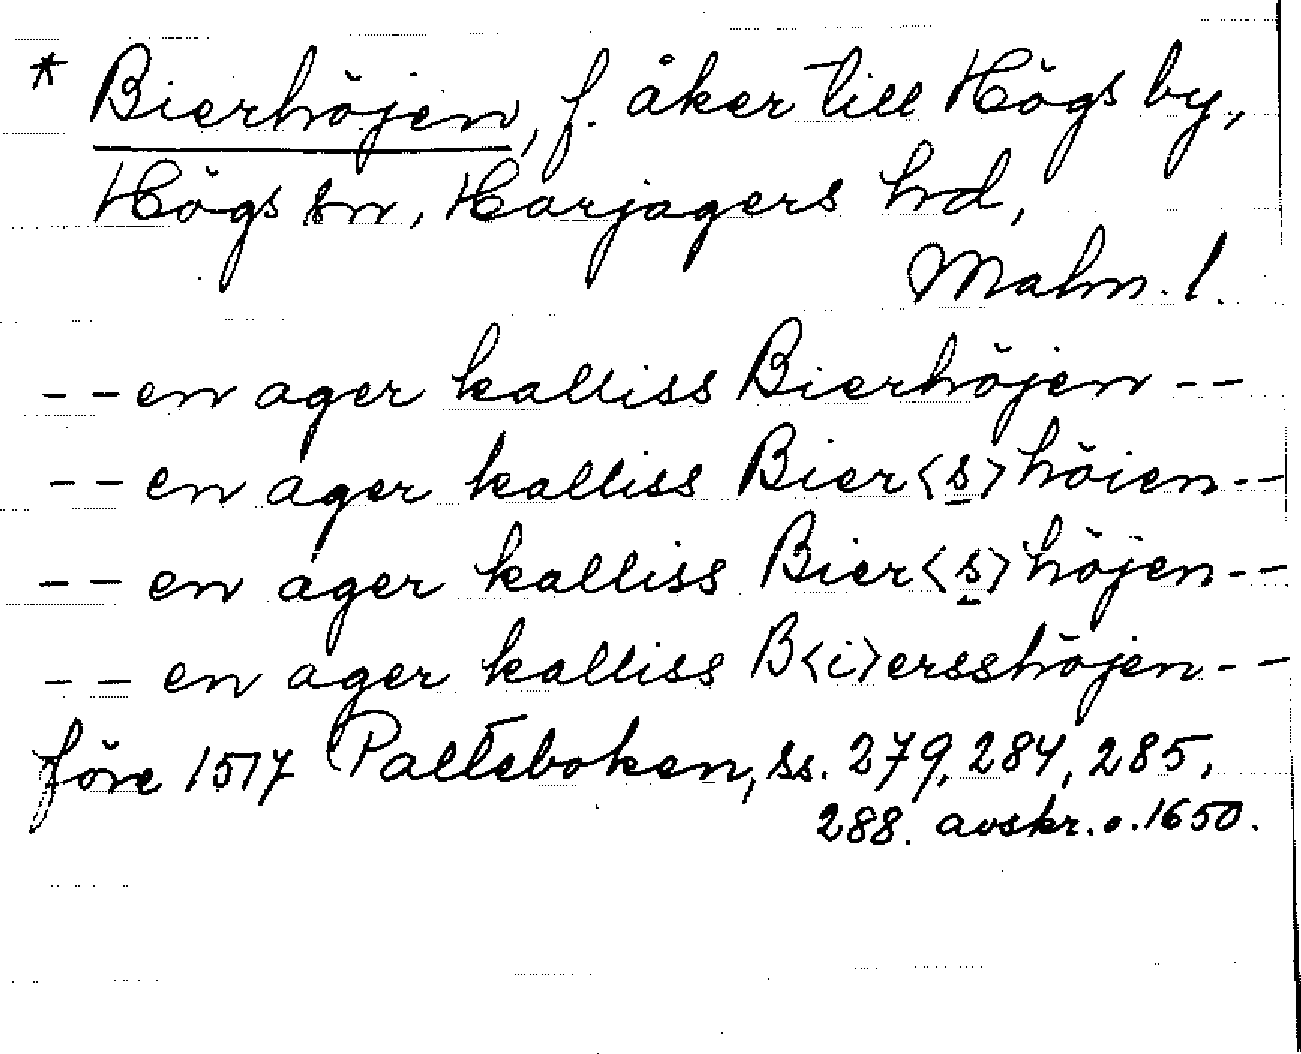 * Bierhöjen, f. åker till Högs by,
Högs sn, Harjagers hd,
Malm. l.
-- en ager kalliss Bierhöjen --
-- en ager kalliss Bier<s>höien --
-- en ager kalliss Bier<s>höjen --
-- en ager kalliss B<i>ersshöjen --
före 1517 Palteboken, ss. 279, 284, 285,
288. avskr. o. 1650.